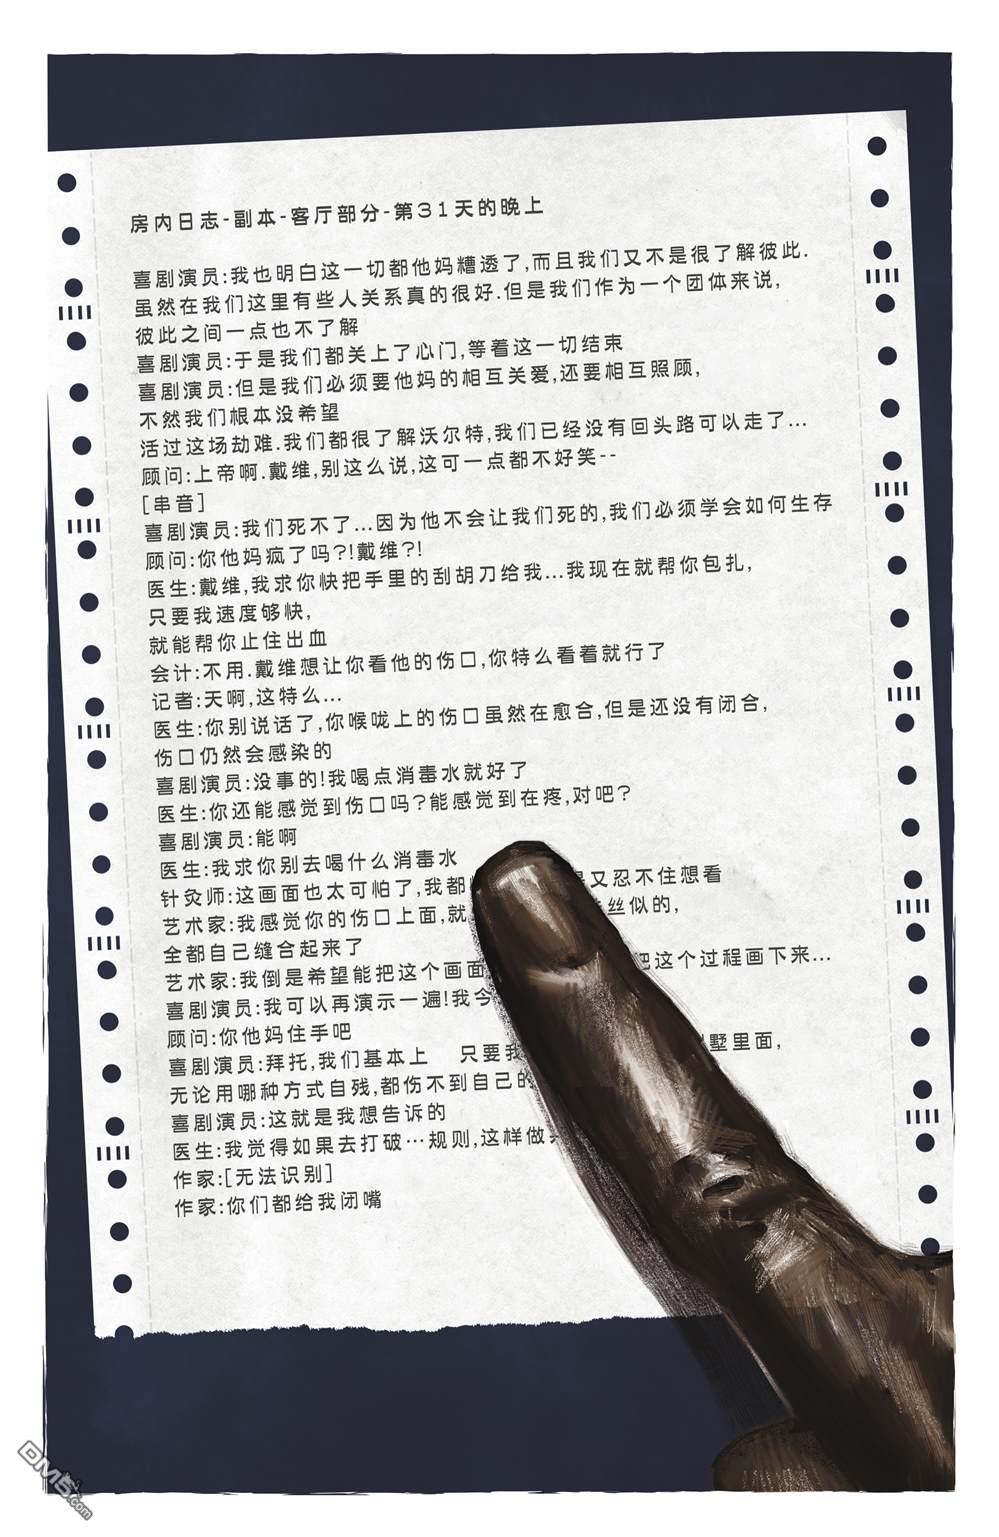 房内日志-副本-客厅部分-第31天的晚上
喜剧演员:我也明白这一切都他妈糟透了,而且我们又不是很了解彼此.
虽然在我们这里有些人关系真的很好.但是我们作为一个团体来说,
彼此之间一点也不了解
喜剧演员:于是我们都关上了心门,等着这一切结束
喜剧演员:但是我们必须要他妈的相互关爱,还要相互照顾,
不然我们根本没希望
活过这场劫难.我们都很了解沃尔特,我们已经没有回头路可以走了...
顾问:上帝啊.戴维,别这么说,这可一点都不好笑--
[串音]
喜剧演员:我们死不了...因为他不会让我们死的,我们必须学会如何生存
顾问:你他妈疯了吗?!戴维?!
医生:戴维,我求你快把手里的刮胡刀给我...我现在就帮你包扎,
只要我速度够快,
就能帮你止住出血
会计:不用.戴维想让你看他的伤口,你特么看着就行了
记者:天啊,这特么...
医生:你别说话了,你喉咙上的伤口虽然在愈合,但是还没有闭合,
伤口仍然会感染的
喜剧演员:没事的!我喝点消毒水就好了
医生:你还能感觉到伤口吗?能感觉到在疼,对吧?
喜剧演员:能啊
医生:我求你别去喝什么消毒水
针灸师:这画面也太可怕了,我都 又忍不住想看
艺术家:我感觉你的伤口上面,就 丝似的,
全都自己缝合起来了
艺术家:我倒是希望能把这个画面 把这个过程画下来...
喜剧演员:我可以再演示一遍!我今
顾问:你他妈住手吧
喜剧演员:拜托,我们基本上 只要我 别墅里面,
无论用哪种方式自残,都伤不到自己的
喜剧演员:这就是我想告诉的
医生:我觉得如果去打破…规则,这样做
作家:[无法识别]
作家:你们都给我闭嘴
DM5.com